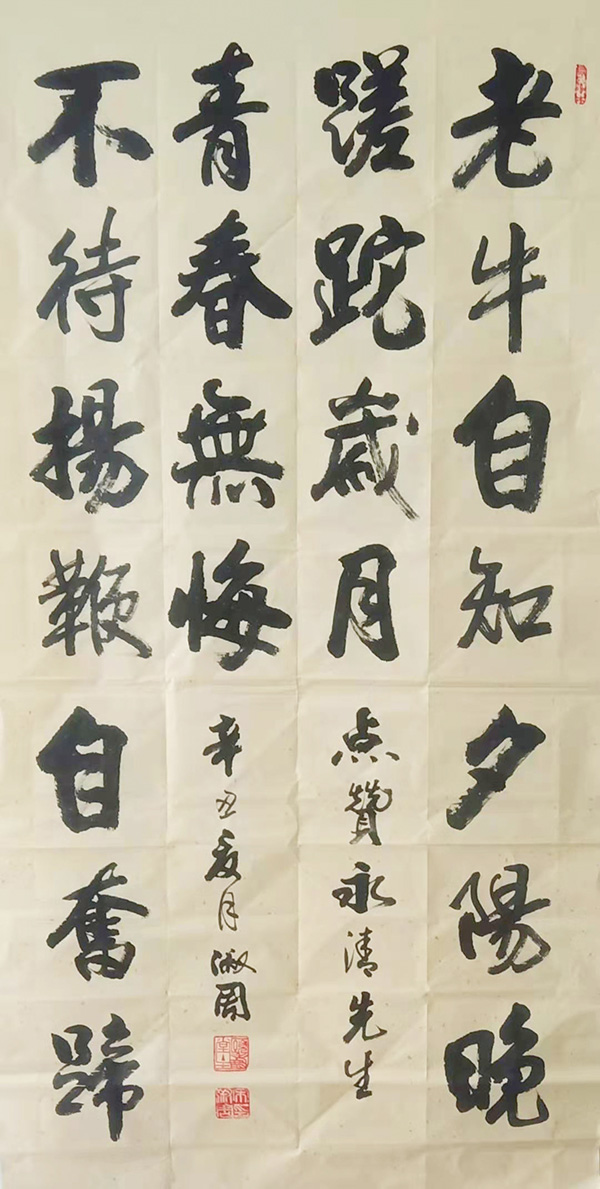 老牛自知夕陽晚
蹉跎歲月
点贊永清先生
青春無悔
辛丑夏月淑
不待揚鞭自奮蹄